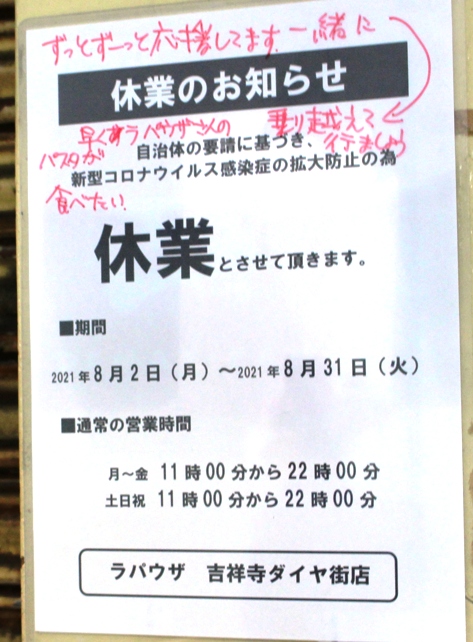 ずっとずーっと応援してます。一緒に
乗り越えて
行きましょう
休業のお知らせ
早く
ラパウザさんの
パスタが
食べたい。
自治体の要請に基づき、
新型コロナウイルス感染症の拡大防止の為
休業とさせて頂きます。
■期間
2021年8月2日（月）～2021年8月31日（火）
■通常の営業時間
月～金 11時00分から22時00分
土日祝 11時00分から22時00分
ラパウザ 吉祥寺ダイヤ街店